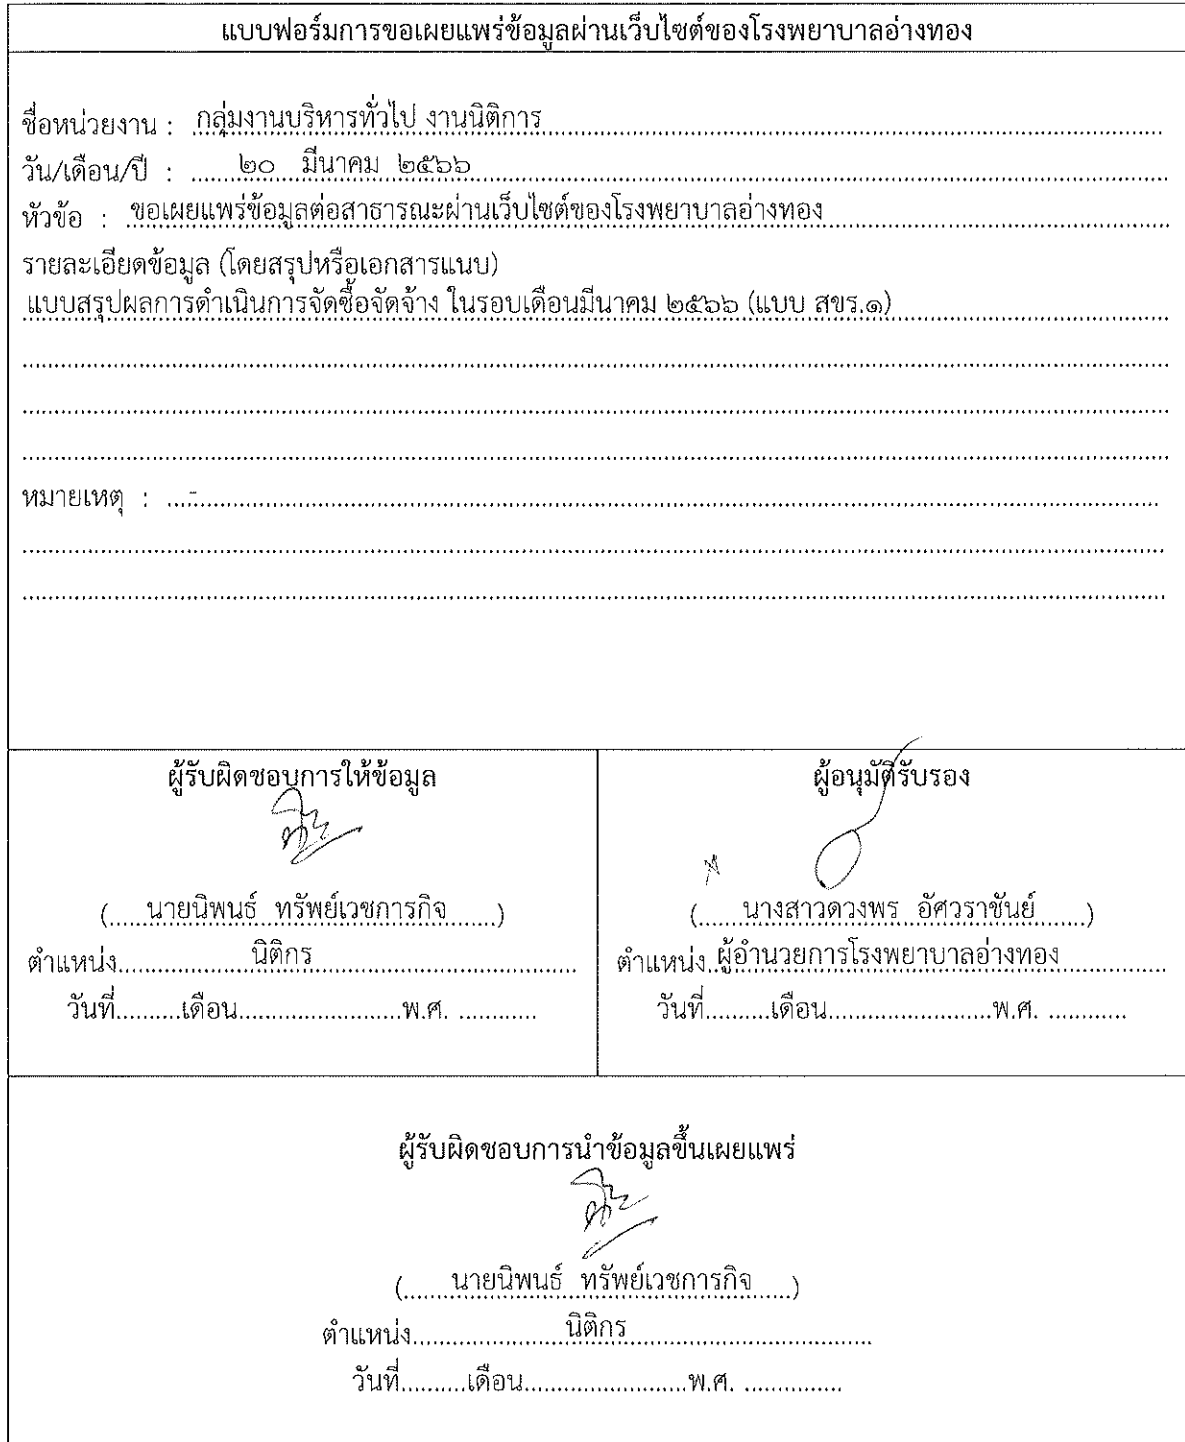 แบบฟอร์มการขอเผยแพร่ข้อมูลผ่านเว็บไซต์ของโรงพยาบาลอ่างทอง
ชื่อหน่วยงาน : กลุ่มงานบริหารทั่วไป งานนิติการ
วัน/เดือน/ปี : ๒๐ มีนาคม ๒๕๖๖
หัวข้อ : ขอเผยแพร่ข้อมูลต่อสาธารณะผ่านเว็บไซต์ของโรงพยาบาลอ่างทอง
รายละเอียดข้อมูล (โดยสรุปหรือเอกสารแนบ)
แบบสรุปผลการดำเนินการจัดซื้อจัดจ้าง ในรอบเดือนมีนาคม ๒๕๖๖ (แบบ สขร.๑)
หมายเหตุ : -
ผู้รับผิดชอบการให้ข้อมูล
(นายนิพนธ์ ทรัพย์เวชการกิจ)
ตำแหน่ง นิติกร
วันที่..........เดือน.........................พ.ศ. ............
ผู้อนุมัติรับรอง
(นางสาวดวงพร อัศวราชันย์)
ตำแหน่ง ผู้อำนวยการโรงพยาบาลอ่างทอง
วันที่..........เดือน.........................พ.ศ. ............
ผู้รับผิดชอบการนำข้อมูลขึ้นเผยแพร่
(นายนิพนธ์ ทรัพย์เวชการกิจ)
ตำแหน่ง นิติกร
วันที่..........เดือน.........................พ.ศ. ...............